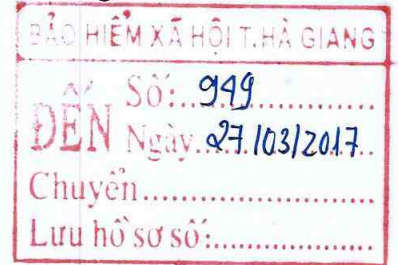 BẢO HIỂM XÃ HỘI T.HÀ GIANG
ĐẾN
Số:...949..............
Ngày..27/03/2017..
Chuyển........................
Lưu hồ sơ số:..................